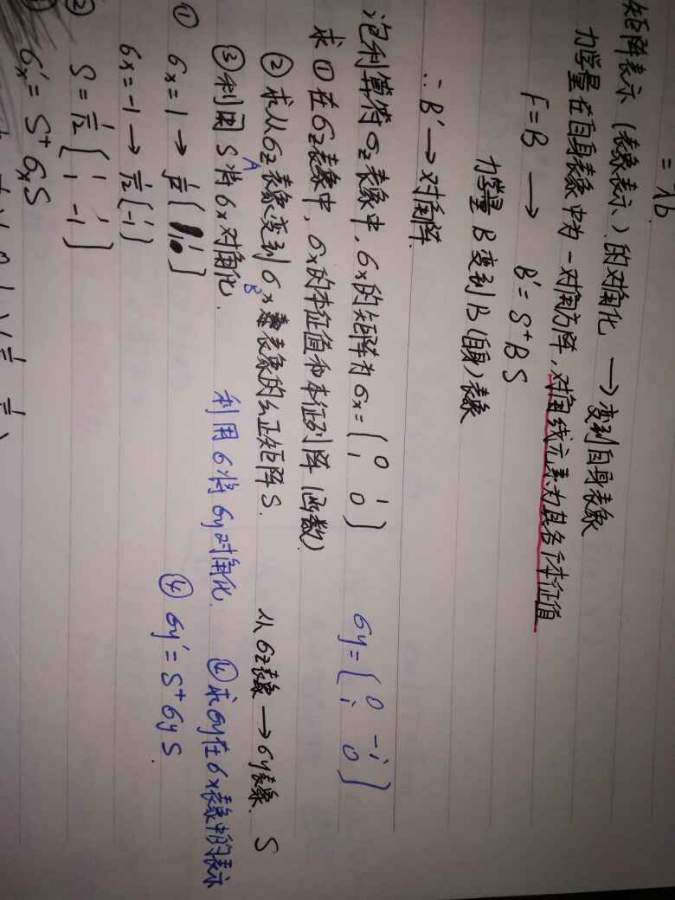 = λb.
矩阵表示（表象表示）的对角化 → 变到自身表象
力学量在自身表象中为一对角方阵，对角线元素为其各个本征值
F=B → B′=S⁺BS
力学量 B 变到 B（自身）表象
∴ B′ → 对角阵.
泡利算符 σz 表象中，σx的矩阵为 σx=(0 1
1 0) σy=(0 -i
i 0)
求 ① 在σz表象中，σx的本征值和本征列阵（函数）
② 求从σz表象变到σx表象的幺正矩阵S. 从σz表象→σy表象. S
A B
③ 利用S将σx对角化. 利用S将σy对角化. ④ 求σy在σx表象中的表示
① σx=1 → 1/√2 ④ σy′=S⁺σyS.
σx=-1 → 1/√2
② S=1/√2(1 1
1 -1)
σx′=S⁺σxS